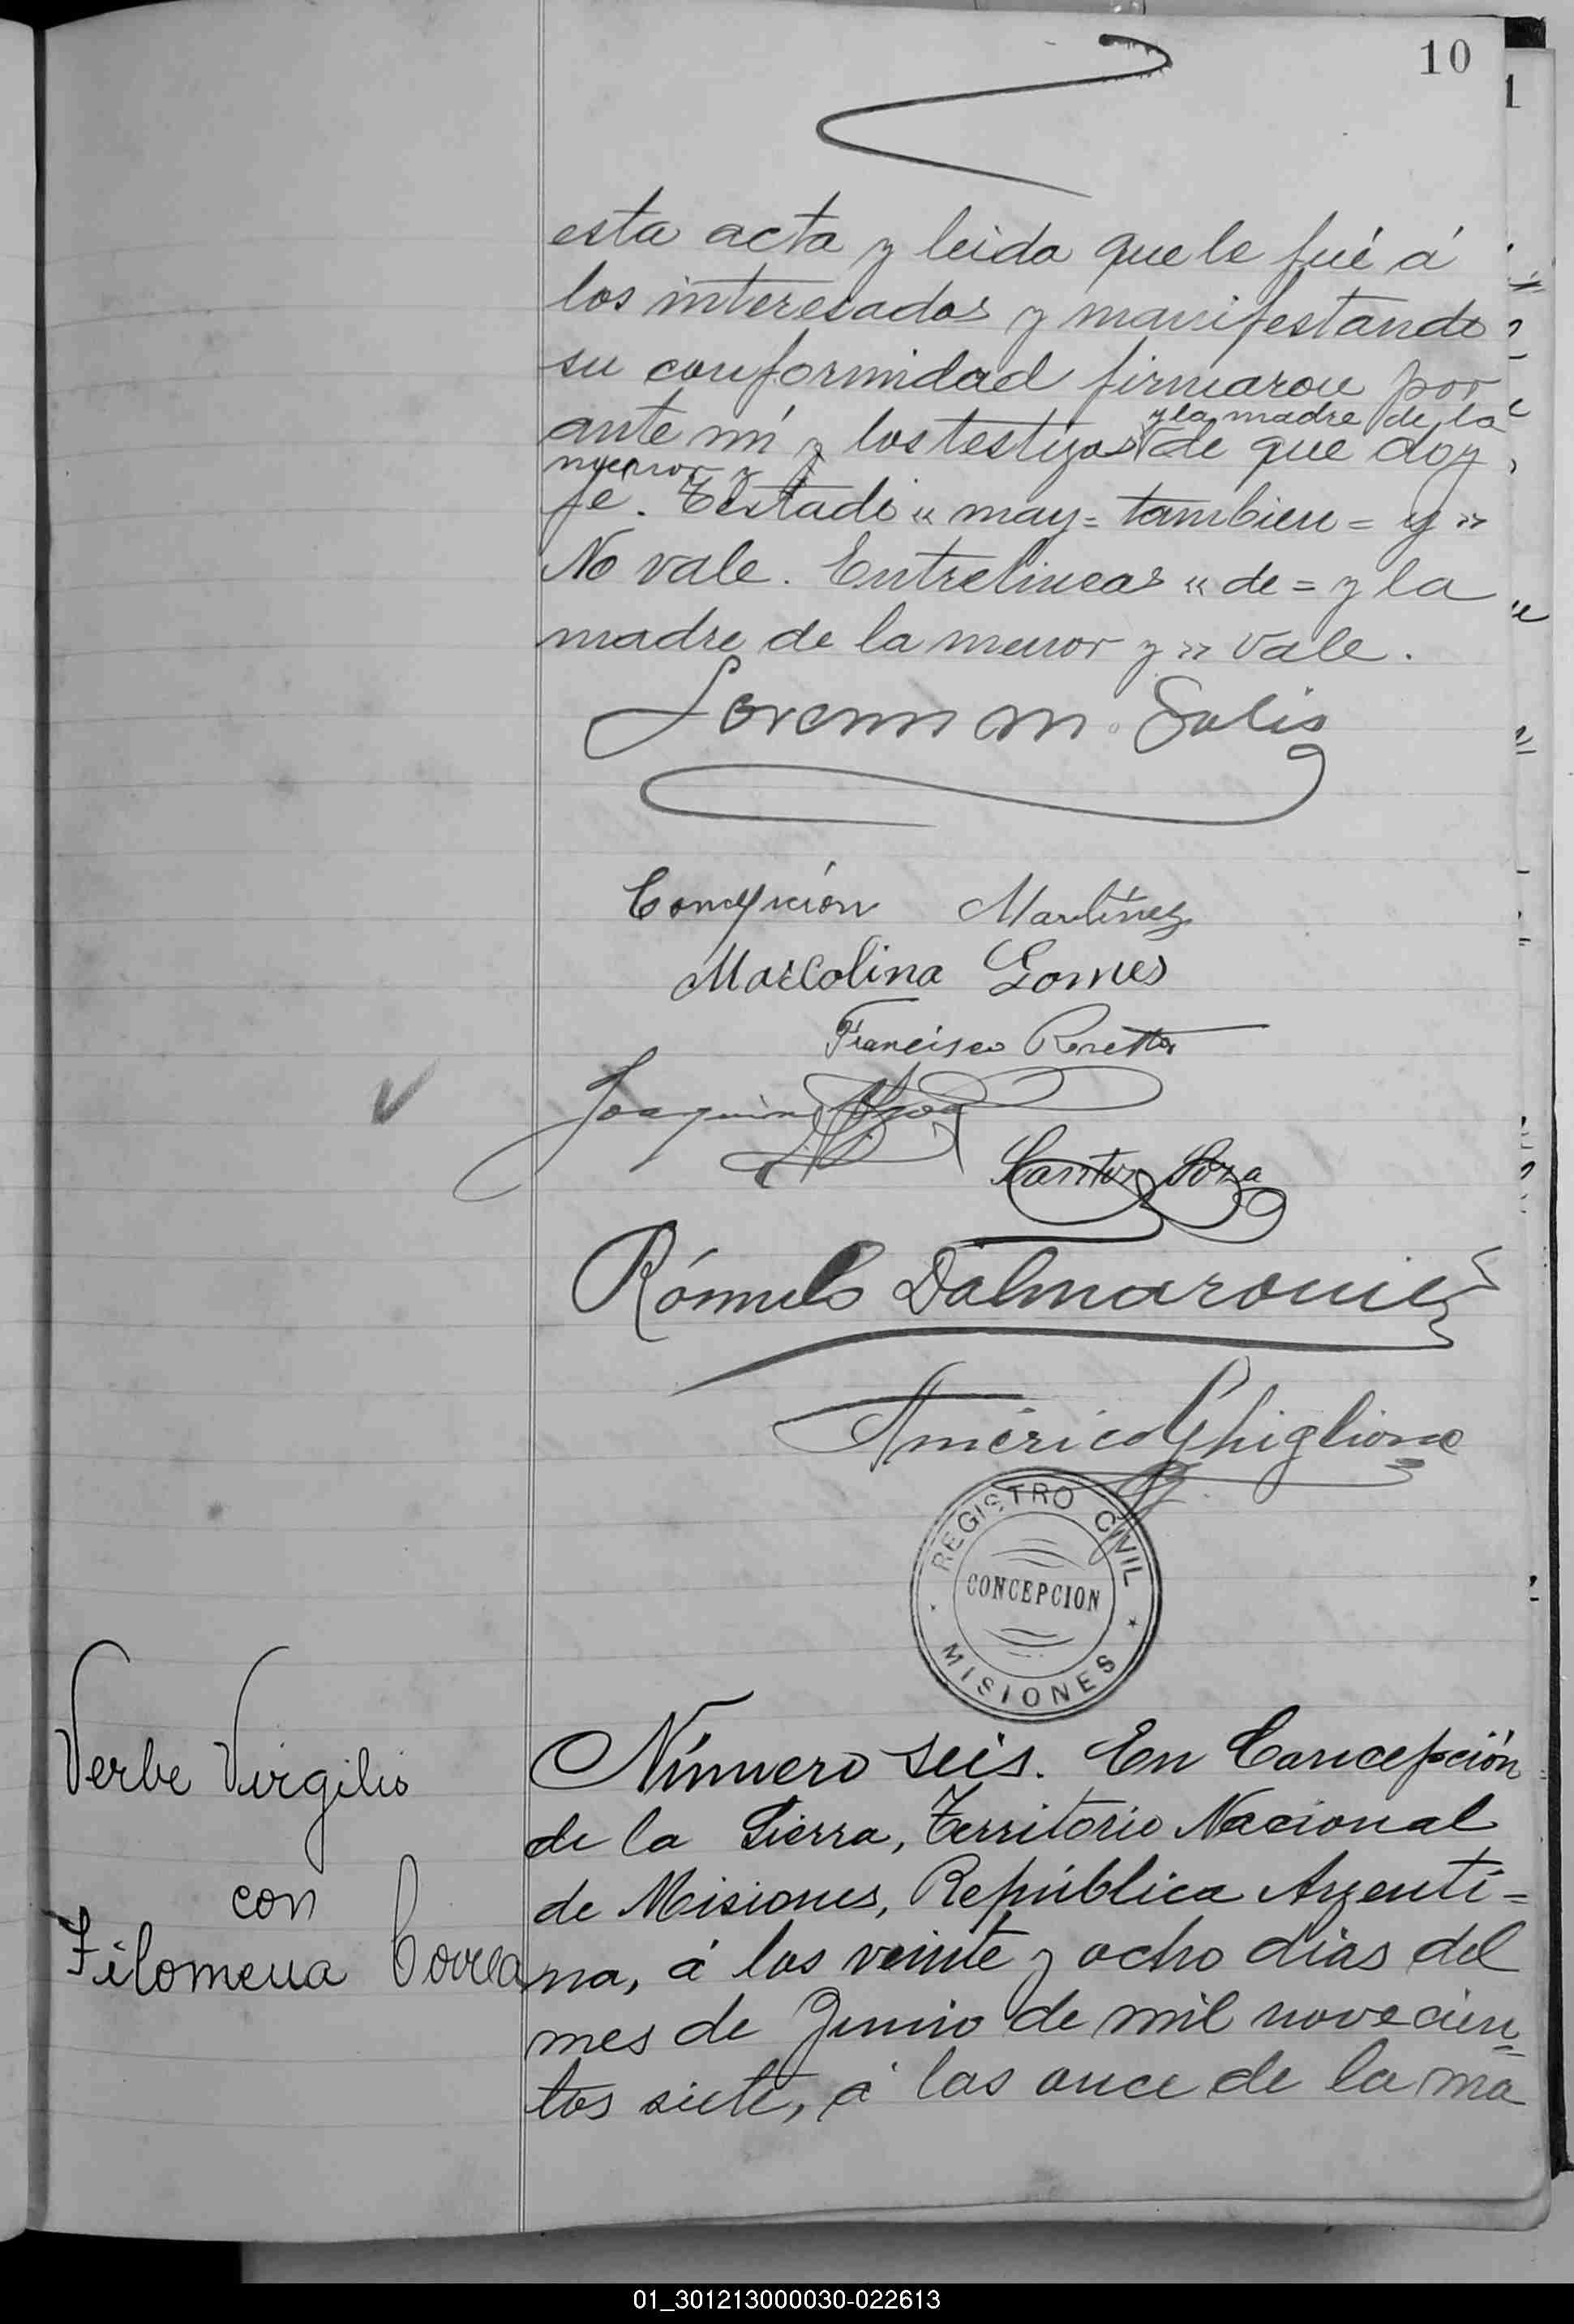 10
esta acta y leida que le fué á
los interesados y manifestando
su conformidad firmaron por
y la madre de la
ante mí y los testigos de que doy
menor y
fé. Testado « may = tambien = y »
No vale. Entrelineas « de = y la
madre de la menor y » vale.
M. Solis
Concepción Martínez
Marcolina Gomes
Francisco
Joaquin
Santos Soza
Rómulo Dalmaroni
Américo Ghiglione
REGISTRO CIVIL
CONCEPCION
MISIONES
Verbe Virgilio
con
Filomena Correa
Número seis. En Concepción
de la Sierra, Territorio Nacional
de Misiones, República Argenti=
na, á los veinte y ocho dias del
mes de Junio de mil novecien=
tos siete, á las once de la ma
01_301213000030-022613